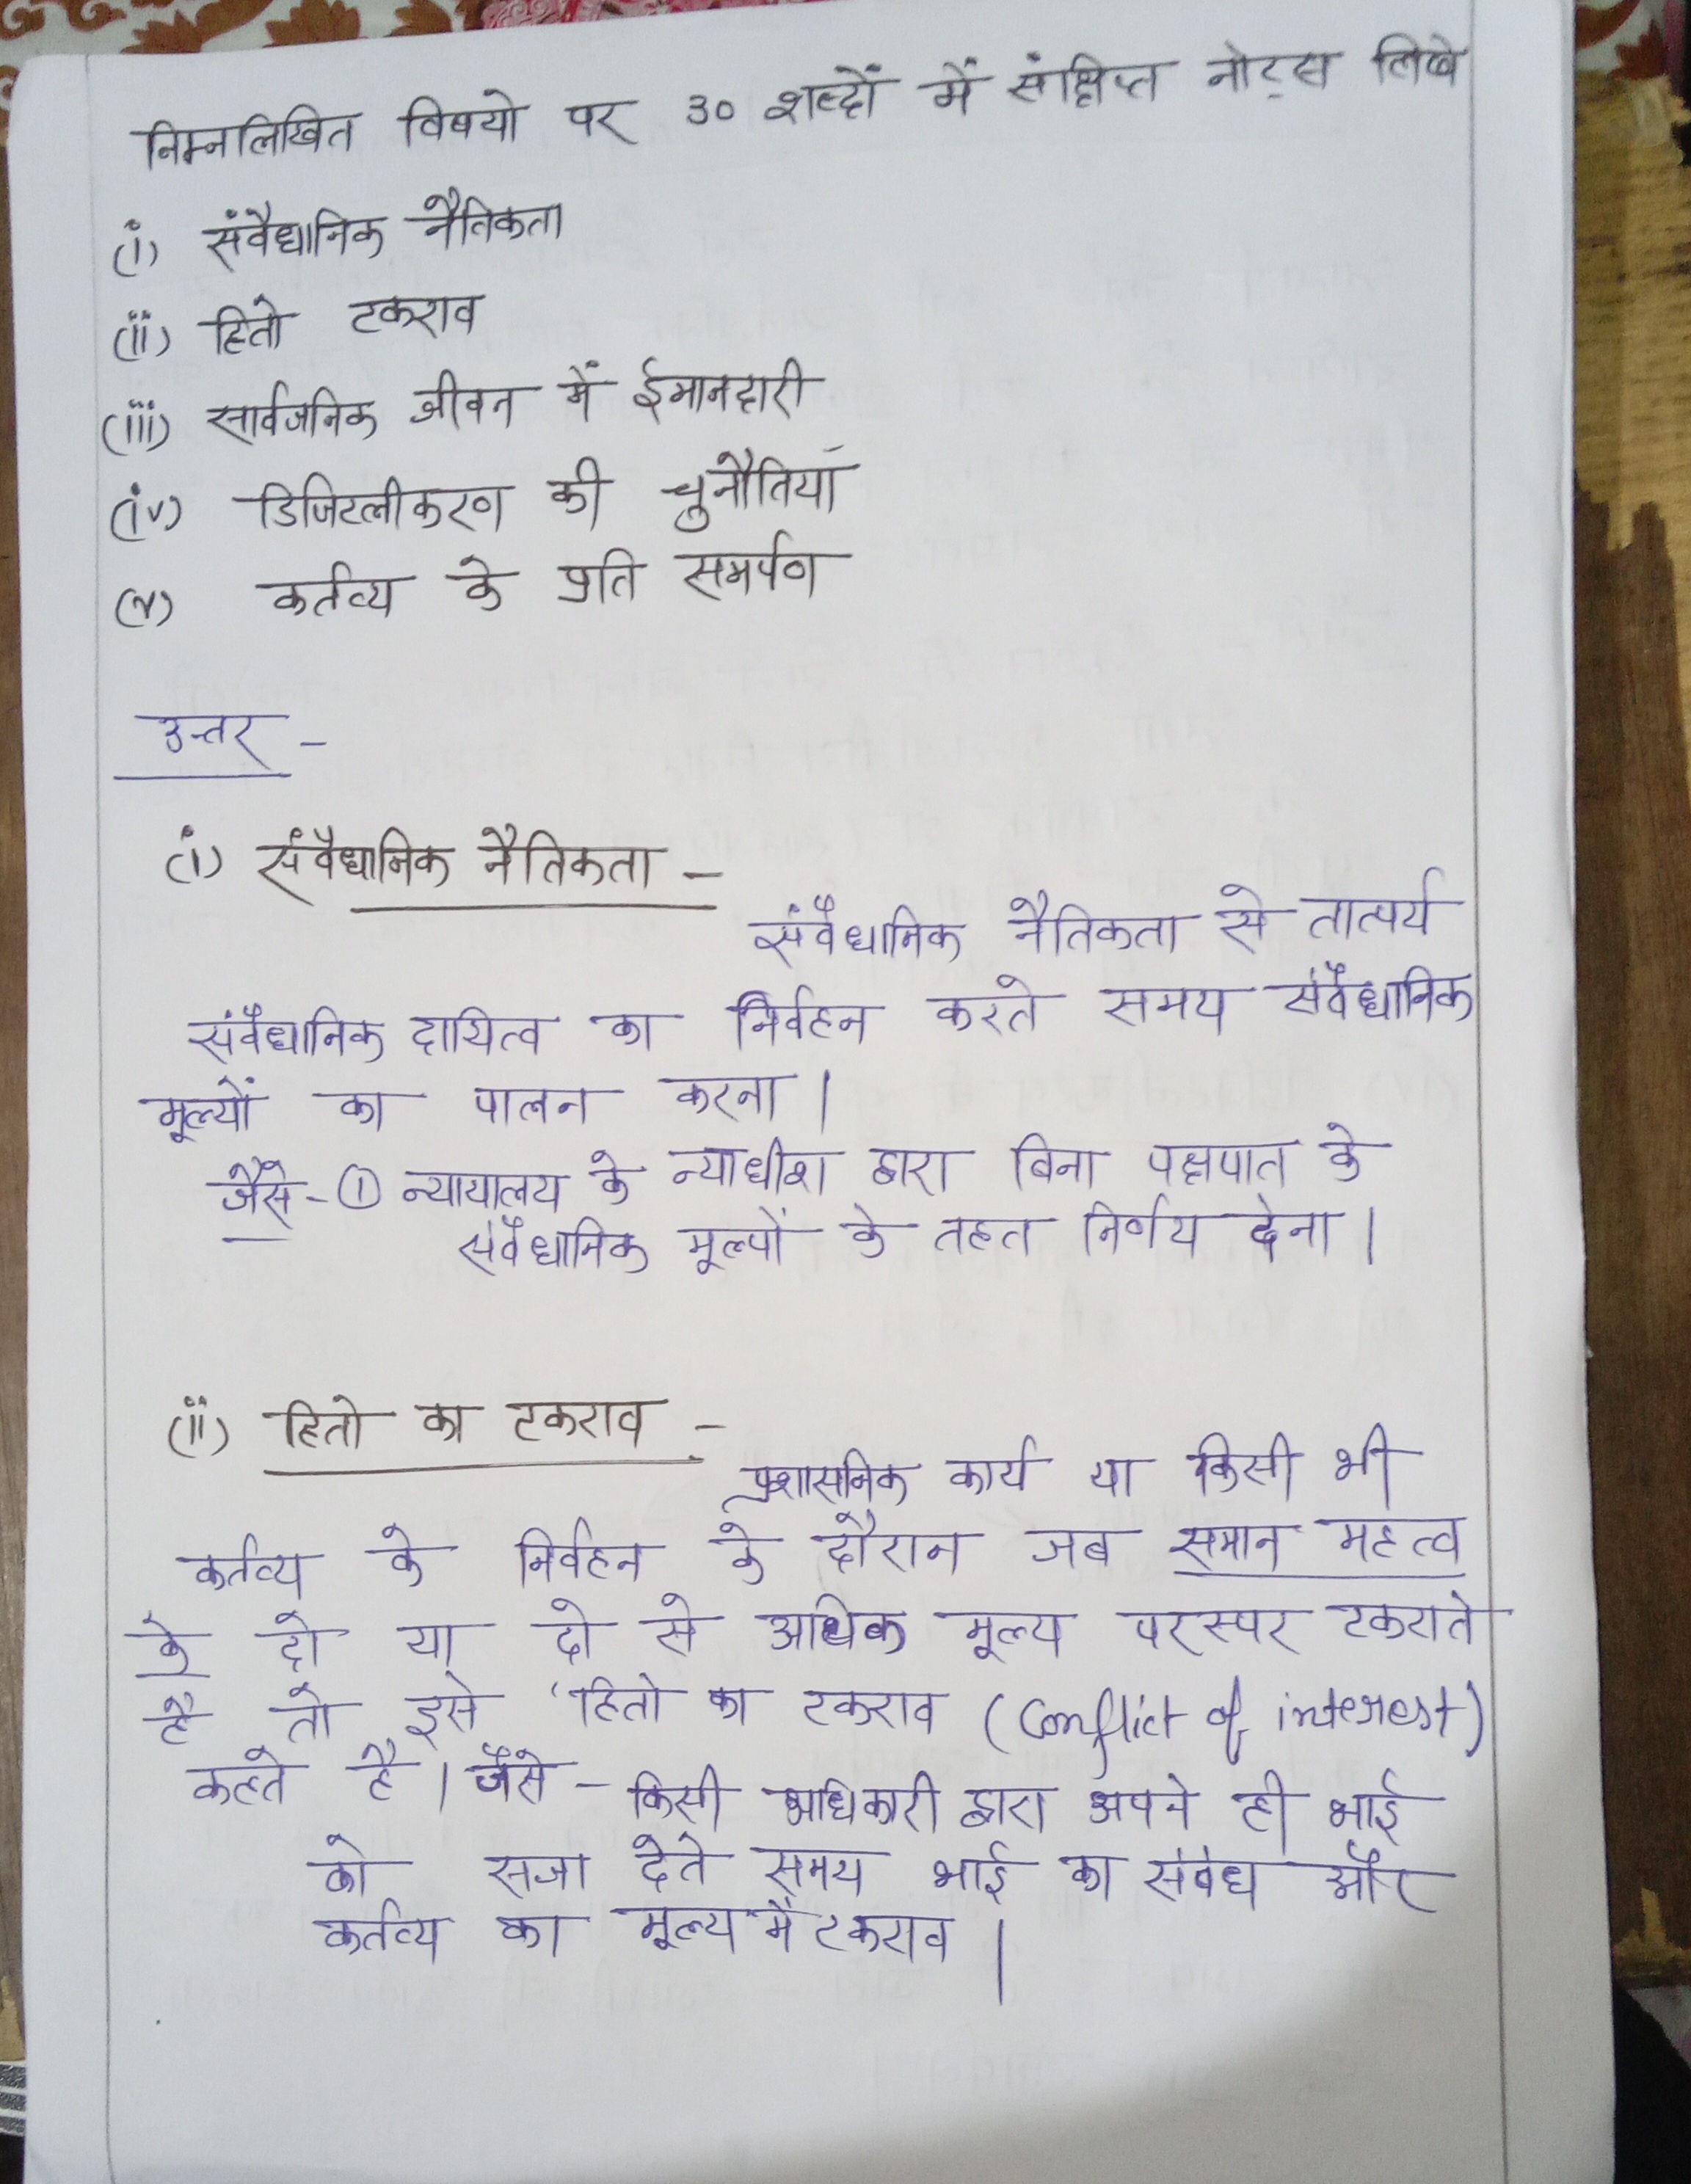 निम्नलिखित विषयो पर 30 शब्दों में संक्षिप्त नोट्स लिखे
(i) संवैधानिक नैतिकता
(ii) हितो टकराव
(iii) सार्वजनिक जीवन में ईमानदारी
(iv) डिजिटलीकरण की चुनौतियां
(v) कर्तव्य के प्रति समर्पण
उत्तर -
(i) संवैधानिक नैतिकता -
संवैधानिक नैतिकता से तात्पर्य
संवैधानिक दायित्व का निर्वहन करते समय संवैधानिक
मूल्यों का पालन करना।
जैसे - ① न्यायालय के न्याधीश द्वारा बिना पक्षपात के
संवैधानिक मूल्यों के तहत निर्णय देना।
(ii) हितो का टकराव -
प्रशासनिक कार्य या किसी भी
कर्तव्य के निर्वहन के दौरान जब समान महत्व
के दो या दो से अधिक मूल्य परस्पर टकराते
है तो इसे 'हितो का टकराव (Conflict of interest)
कहते है। जैसे - किसी अधिकारी द्वारा अपने ही भाई
को सजा देते समय भाई का संबंध और
कर्तव्य का मूल्य में टकराव।